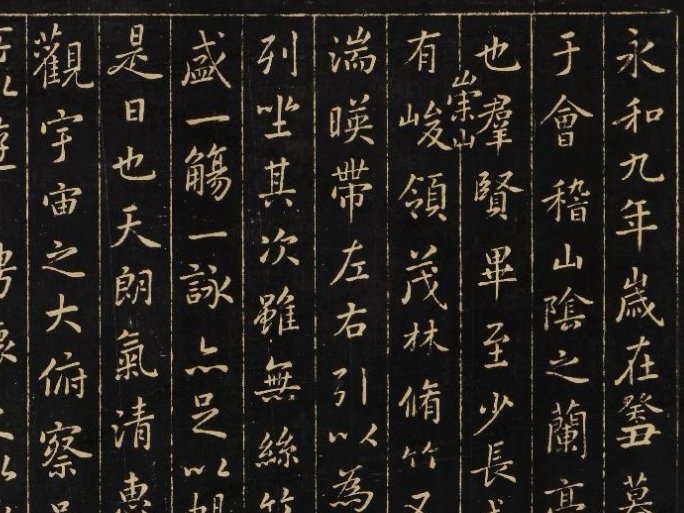 永和九年歲在癸丑暮
于會稽山陰之蘭亭
也羣賢畢至少長咸
有崇山峻領茂林脩竹又
湍暎帶左右引以為
列坐其次雖無絲竹
盛一觴一詠亦足以暢
是日也天朗氣清惠
觀宇宙之大俯察品